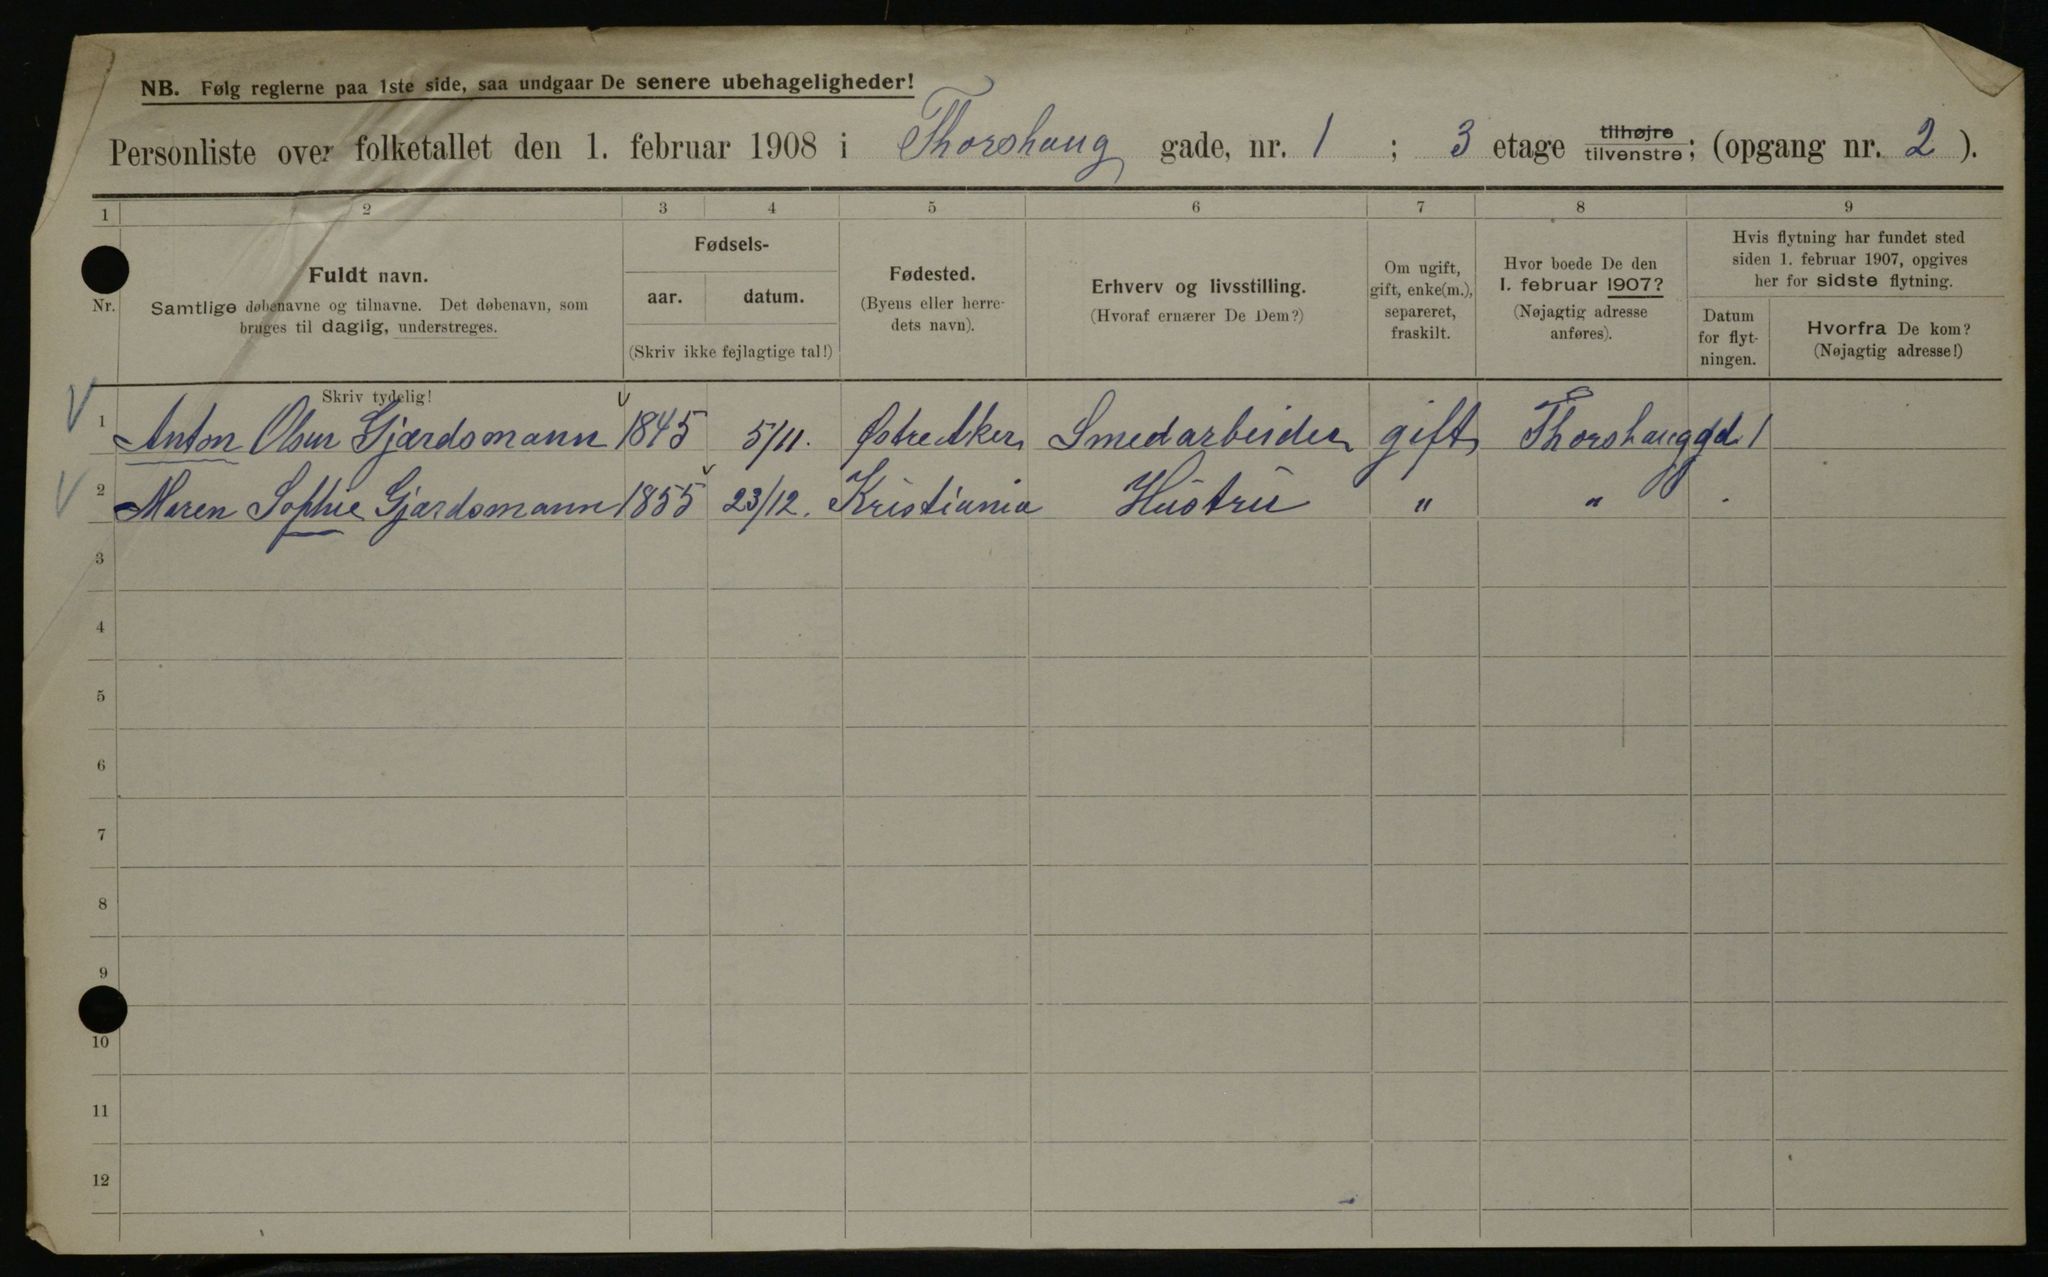 NB. Følg reglerne paa 1ste side, saa undgaar De senere ubehageligheder!
Personliste over folketallet den 1. februar 1908 i Thorshaug gade, nr. 1 ; 3 etage tilhøjre tilvenstre; (opgang nr. 2 ).
1 2 3 4 5 6 7 8 9
Nr.
Fuldt navn.
Samtlige døbenavne og tilnavne. Det døbenavn, som
bruges til daglig, understreges.
Skriv tydelig!
Fødsels-
aar. datum.
(Skriv ikke fejlagtige tal!)
Fødested.
(Byens eller herre-
dets navn).
Erhverv og livsstilling.
(Hvoraf ernærer De Dem?)
Om ugift,
gift, enke(m.),
separeret,
fraskilt.
Hvor boede De den
1. februar 1907?
(Nøjagtig adresse
anføres).
Hvis flytning har fundet sted
siden 1. februar 1907, opgives
her for sidste flytning.
Datum
for flyt-
ningen.
Hvorfra De kom?
(Nøjagtig adresse!)
1 Anton Olsen Gjærdsmann 1845 5/11. Østre Aker Smedarbeider gift Thorshauggd 1
2 Maren Sophie Gjærdsmann 1855 23/12. Kristiania Hustru " "
3
4
5
6
7
8
9
10
11
12